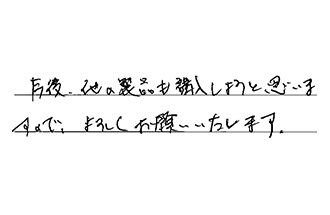 今後、他の製品も購入しようと思いま
すので、よろしくお願いいたします。